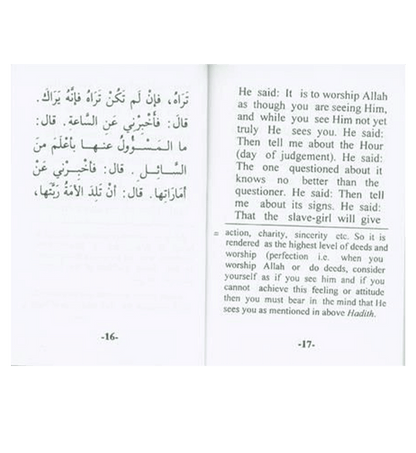 تَرَاهُ، فَإِنْ لَم تَكُنْ تَرَاهُ فَإِنَّهُ يَرَاكَ.
قالَ: فَأَخْبِرْنِي عَنِ السَّاعَةِ. قال:
ما المَسْؤُولُ عنها بأَعْلَمَ مِنَ
السَّائِلِ. قال: فأَخْبِرْنِي عَنْ
أَمَارَاتِها. قال: أَنْ تَلِدَ الأَمَةُ رَبَّتَها،
-16-
He said: It is to worship Allah
as though you are seeing Him,
and while you see Him not yet
truly He sees you. He said:
Then tell me about the Hour
(day of judgement). He said:
The one questioned about it
knows no better than the
questioner. He said: Then tell
me about its signs. He said:
That the slave-girl will give
= action, charity, sincerity etc. So it is
rendered as the highest level of deeds and
worship (perfection i.e. when you
worship Allah or do deeds, consider
yourself as if you see him and if you
cannot achieve this feeling or attitude
then you must bear in the mind that He
sees you as mentioned in above Hadith.
-17-